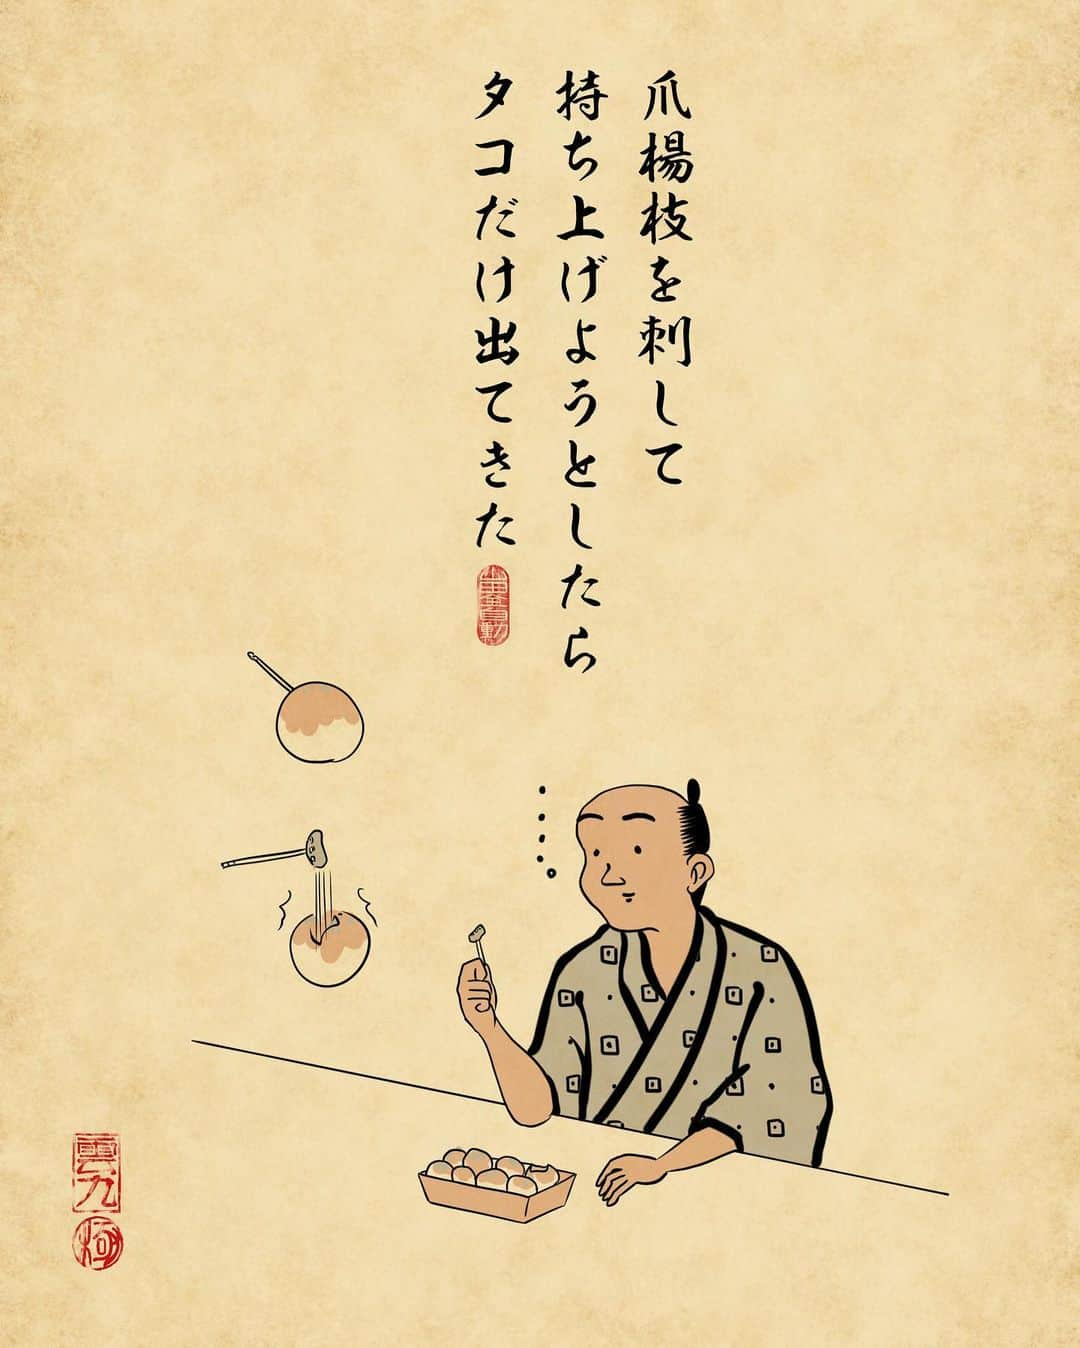 爪楊枝を刺して
持ち上げようとしたら
タコだけ出てきた